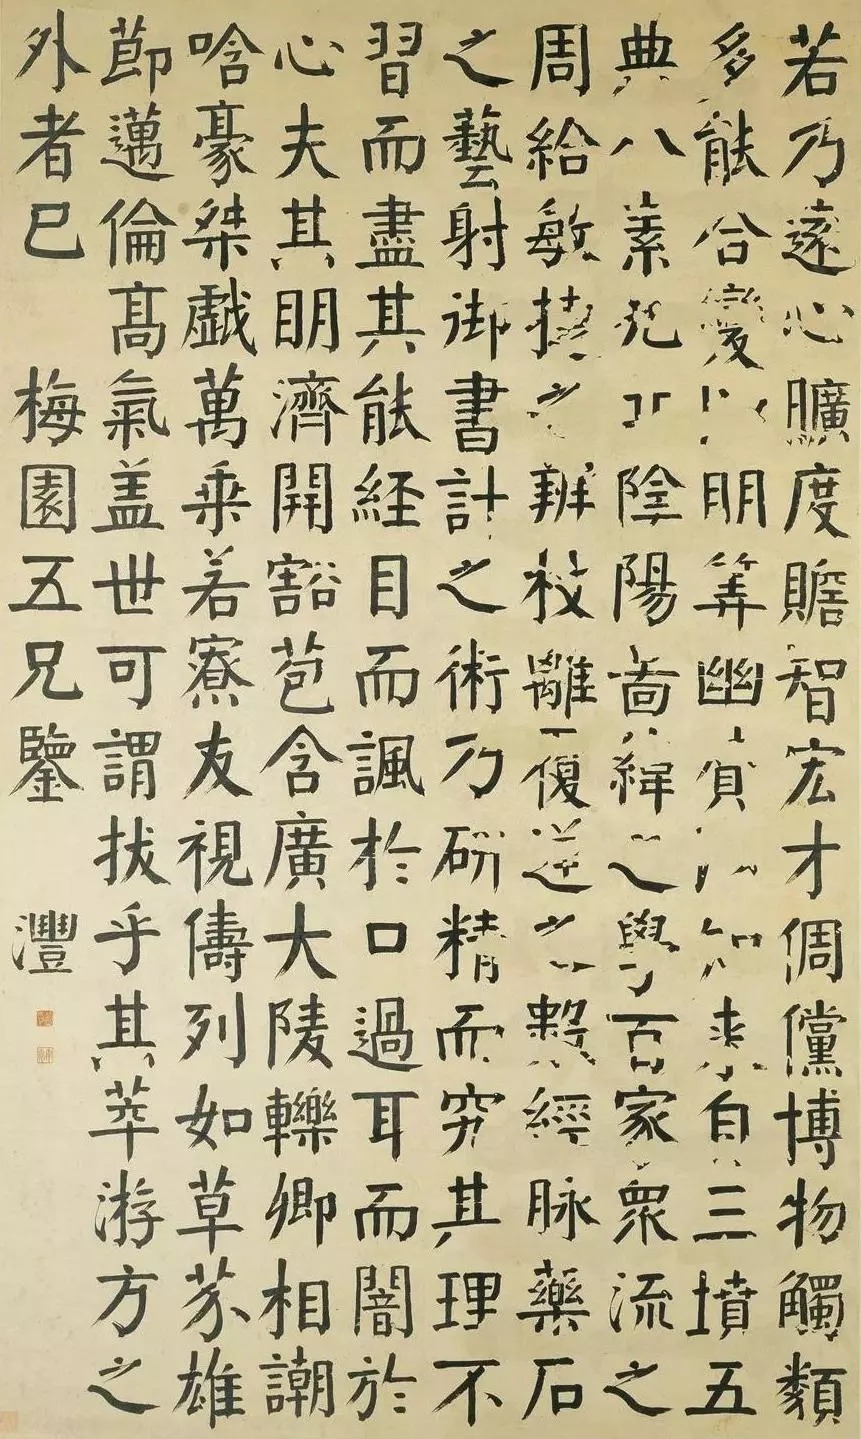 若乃遠心曠度贍智宏才倜儻博物觸類
多能合變以明筭幽賛以知來自三墳五
典八素九丘陰陽啚緯之學百家衆流之
周給敏捷之辨枝離覆逆之數經脉藥石
之藝射御書計之術乃研精而究其理不
習而盡其能経目而諷於口過耳而闇於
心夫其明濟開豁苞含廣大陵轢卿相謿
唅豪桀戯萬乗若寮友視儔列如草芥雄
節邁倫髙氣盖世可謂拔乎其萃游方之
外者已 梅園五兄鑒 灃